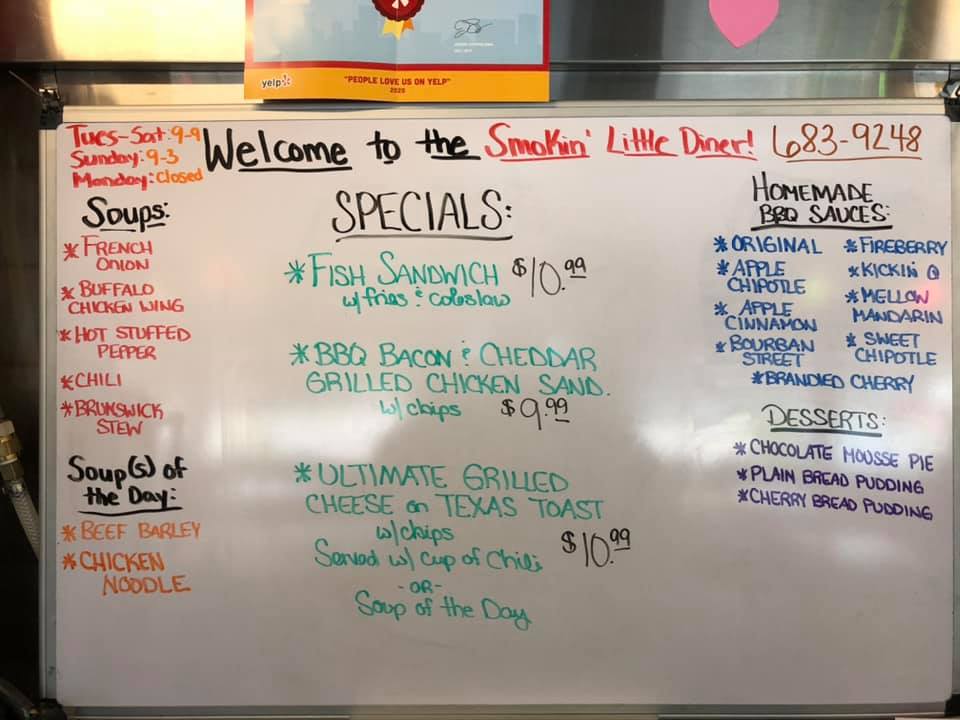 yelp
"PEOPLE LOVE US ON YELP"
2020
Tues-Sat: 9-9
Sunday: 9-3
Monday: Closed
Welcome to the Smokin' Little Diner!
683-9248
Soups:
* FRENCH
ONION
* BUFFALO
CHICKEN WING
* HOT STUFFED
PEPPER
* CHILI
* BRUNSWICK
STEW
Soup(s) of
the Day:
* BEEF BARLEY
* CHICKEN
NOODLE
SPECIALS:
* FISH SANDWICH $10.99
w/ fries & coleslaw
* BBQ BACON & CHEDDAR
GRILLED CHICKEN SAND.
w/ chips $9.99
* ULTIMATE GRILLED
CHEESE on TEXAS TOAST
w/ chips
Served w/ cup of Chili $10.99
-OR-
Soup of the Day
HOMEMADE
BBQ SAUCES:
* ORIGINAL
* APPLE
CHIPOTLE
* APPLE
CINNAMON
* BOURBAN
STREET
* FIREBERRY
* KICKIN Q
* MELLOW
MANDARIN
* SWEET
CHIPOTLE
* BRANDIED CHERRY
DESSERTS:
* CHOCOLATE MOUSSE PIE
* PLAIN BREAD PUDDING
* CHERRY BREAD PUDDING